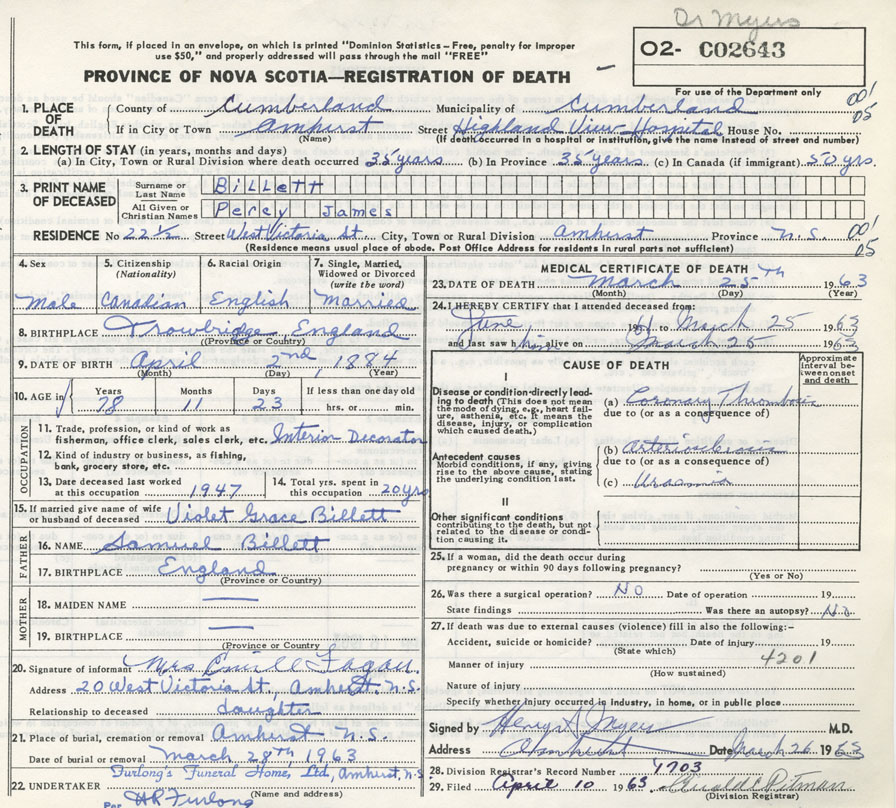 Dr Myers
This form, if placed in an envelope, on which is printed "Dominion Statistics—Free, penalty for improper
use $50," and properly addressed will pass through the mail "FREE"
O2- C02643
PROVINCE OF NOVA SCOTIA—REGISTRATION OF DEATH
For use of the Department only
1. PLACE OF DEATH County of Cumberland Municipality of Cumberland 001
If in City or Town Amherst Street Highland View Hospital House No. 05
(Name) (If death occurred in a hospital or institution, give the name instead of street and number)
2. LENGTH OF STAY (in years, months and days)
(a) In City, Town or Rural Division where death occurred 35 years (b) In Province 35 years (c) In Canada (if immigrant) 50 yrs.
3. PRINT NAME OF DECEASED Surname or Last Name Billett
All Given or Christian Names Percy James
RESIDENCE No 22½ Street West Victoria St. City, Town or Rural Division Amherst Province N.S. 001
(Residence means usual place of abode. Post Office Address for residents in rural parts not sufficient) 05
4. Sex 5. Citizenship (Nationality) 6. Racial Origin 7. Single, Married, Widowed or Divorced (write the word)
Male Canadian English Married
8. BIRTHPLACE Trowbridge England
(Province or Country)
9. DATE OF BIRTH April 2nd, 1884
(Month) (Day) (Year)
10. AGE in Years Months Days If less than one day old
78 11 23 hrs. or min.
OCCUPATION
11. Trade, profession, or kind of work as
fisherman, office clerk, sales clerk, etc. Interior Decorator
12. Kind of industry or business, as fishing,
bank, grocery store, etc.
13. Date deceased last worked at this occupation 1947 14. Total yrs. spent in this occupation 20 yrs
15. If married give name of wife
or husband of deceased Violet Grace Billett
FATHER
16. NAME Samuel Billett
17. BIRTHPLACE England
(Province or Country)
MOTHER
18. MAIDEN NAME —
19. BIRTHPLACE —
(Province or Country)
20. Signature of informant Mrs Fagan
Address 20 West Victoria St., Amherst. N.S.
Relationship to deceased daughter
21. Place of burial, cremation or removal Amherst N.S.
Date of burial or removal March 28th, 1963
Furlong's Funeral Home, Ltd, Amherst, N.S
22. UNDERTAKER (Name and address)
Per HR Furlong
MEDICAL CERTIFICATE OF DEATH
23. DATE OF DEATH March 25th 1963
(Month) (Day) (Year)
24. I HEREBY CERTIFY that I attended deceased from:
June 1961 to March 25 1963
and last saw him alive on March 25 1963
CAUSE OF DEATH
Approximate interval between onset and death
I
Disease or condition directly leading to death (This does not mean the mode of dying, e.g., heart failure, asthenia, etc. It means the disease, injury, or complication which caused death.)
(a) Coronary Thrombosis
due to (or as a consequence of)
Antecedent causes
Morbid conditions, if any, giving rise to the above cause, stating the underlying condition last.
(b) Arteriosclerosis
due to (or as a consequence of)
(c) Uraemia
II
Other significant conditions
contributing to the death, but not related to the disease or condition causing it.
25. If a woman, did the death occur during
pregnancy or within 90 days following pregnancy?
(Yes or No)
26. Was there a surgical operation? NO Date of operation 19
State findings Was there an autopsy? No
27. If death was due to external causes (violence) fill in also the following:-
Accident, suicide or homicide? Date of injury 19
(State which)
4201
Manner of injury
(How sustained)
Nature of injury
Specify whether injury occurred in industry, in home, or in public place
Signed by Henry A Myers M.D.
Address Amherst Date March 26 1963
28. Division Registrar's Record Number 4703
29. Filed April 10 1963 Pitman
(Division Registrar)